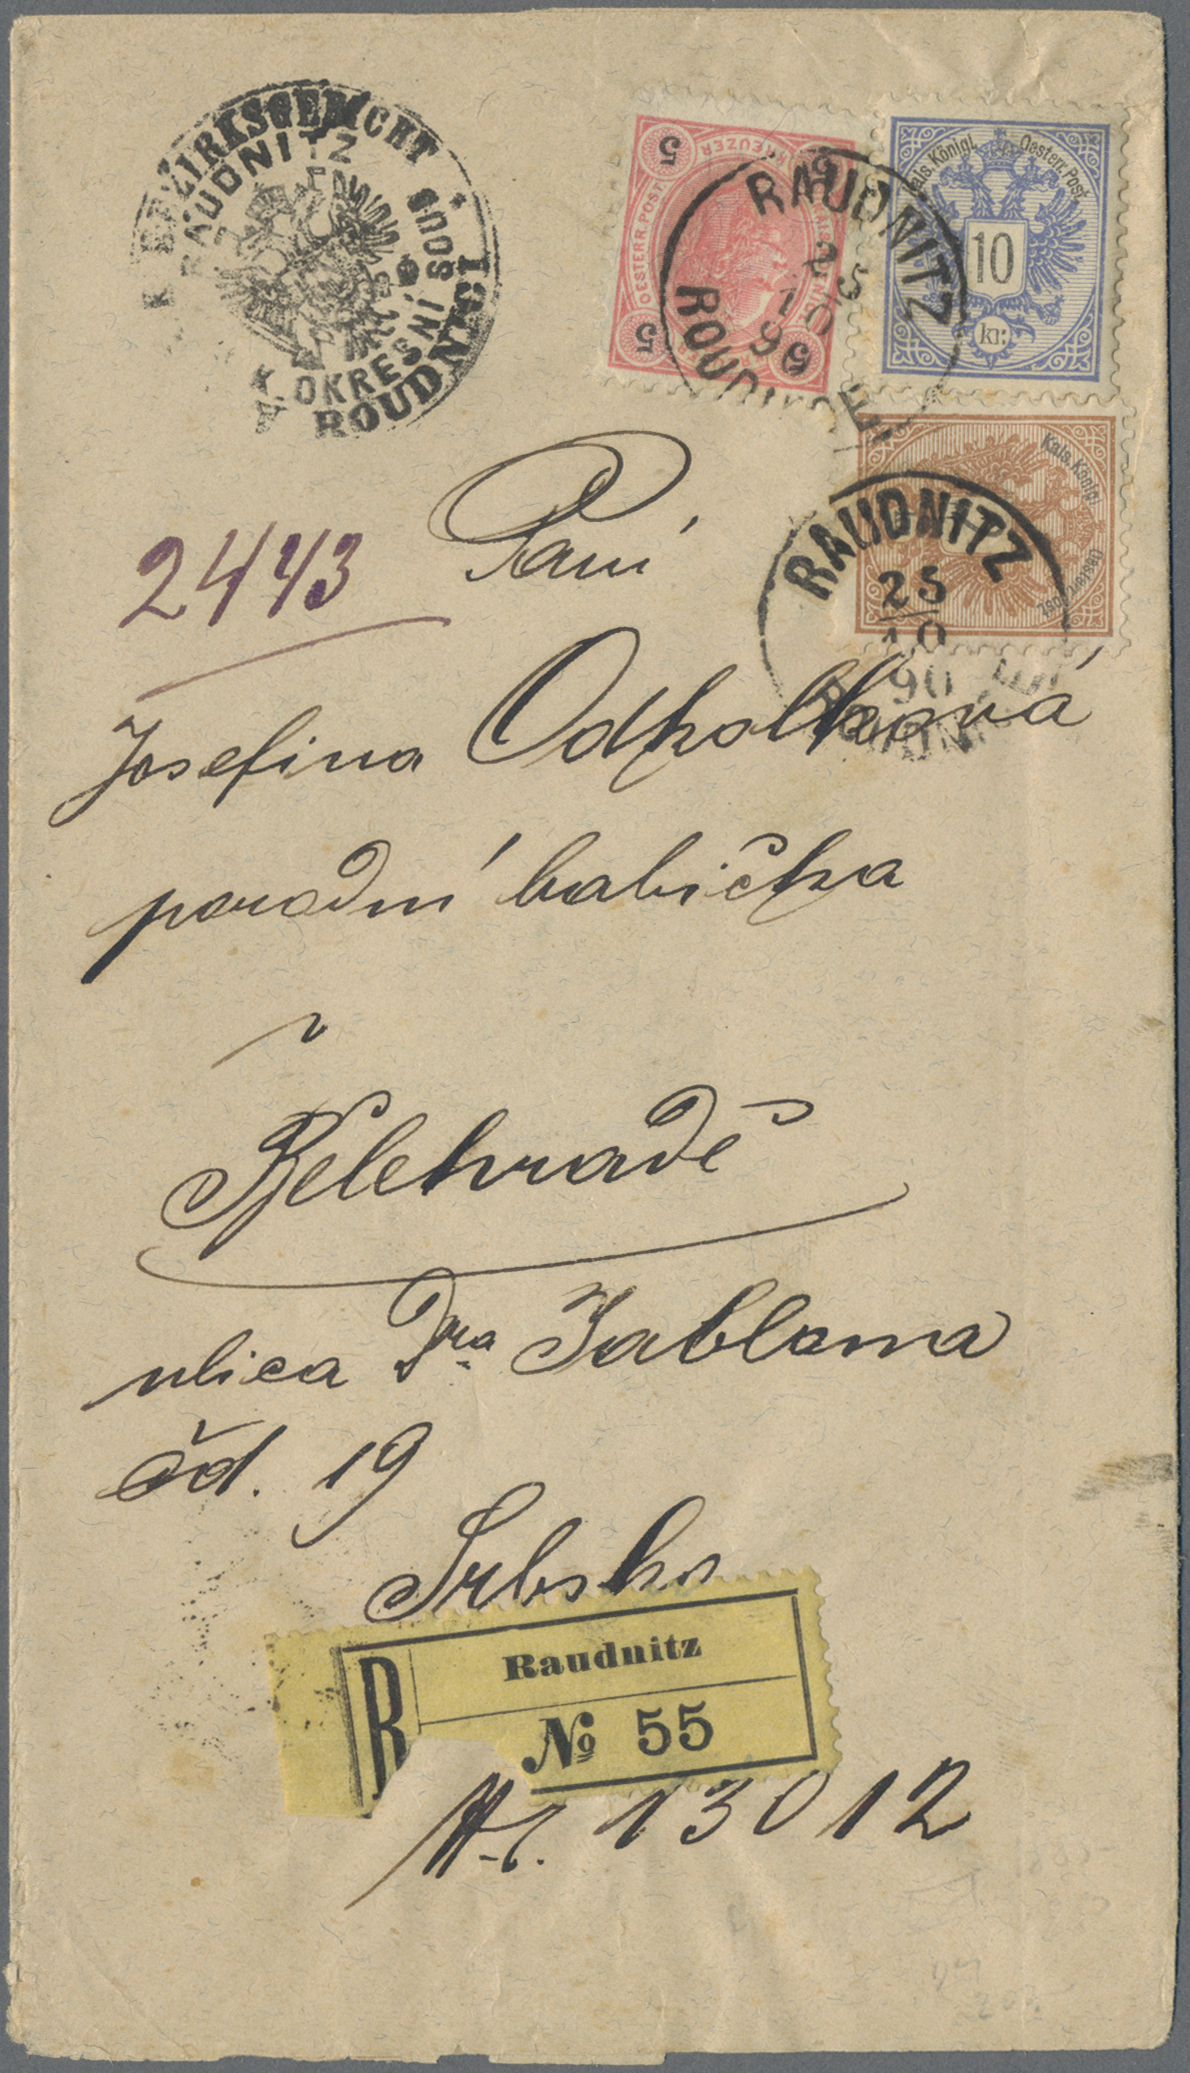 K. K. BEZIRKSGERICHT
RAUDNITZ
OKRESNÍ SOUD
ROUDNICI
5 KREUZER 5
OESTERR. POST
5
Kais. Königl. Oesterr. Post.
10
kr:
RAUDNITZ
25
10
90
Kais. Königl.
Oesterr. Post
RAUDNITZ
25
10
90
2443
Paní
Josefina Odkolková
porodní babička
v
Bělehradě
ulica Dra Jablana
čd. 19
Srbsko
R
Raudnitz
№ 55
Nr. 13012